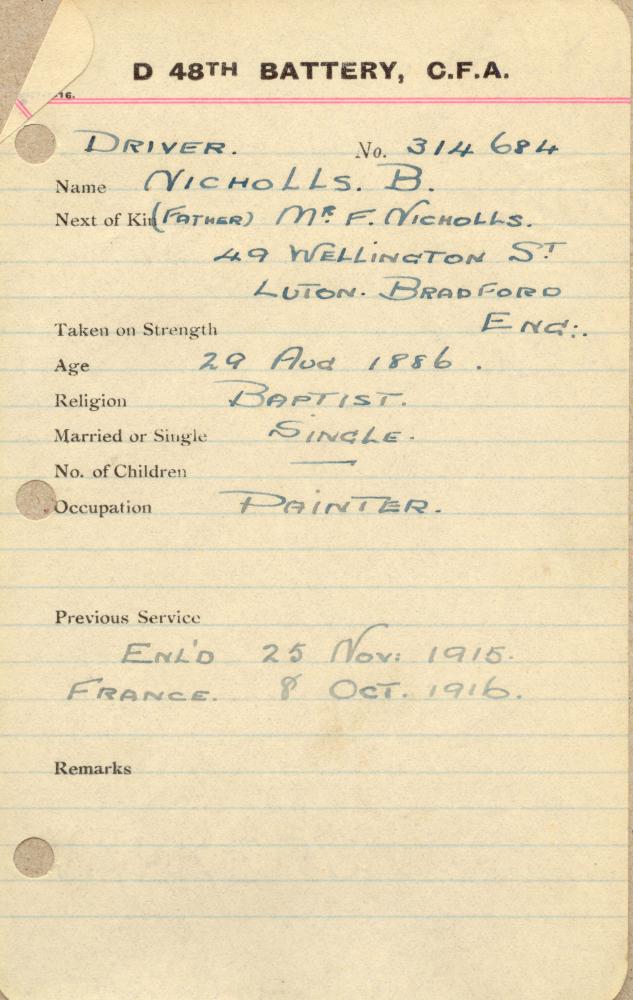 D 48TH BATTERY, C.F.A.
16.
DRIVER. No. 314684
Name NICHOLLS. B.
Next of Kin (FATHER) MR F. NICHOLLS.
49 WELLINGTON ST
LUTON. BRADFORD
Taken on Strength ENG:.
Age 29 AUG 1886.
Religion BAPTIST.
Married or Single SINGLE.
No. of Children —
Occupation PAINTER.
Previous Service
ENL'D 25 NOV: 1915.
FRANCE. 8 OCT. 1916.
Remarks